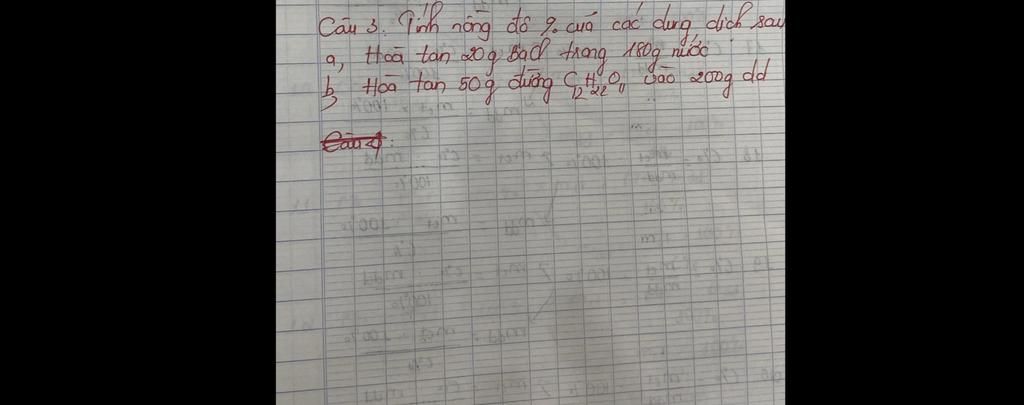 Câu 3. Tính nồng độ % của các dung dịch sau
a, Hoà tan 20g BaCl trong 180g nước
b, Hoà tan 50g đường C12H22O11 vào 200g dd
Câu 4: